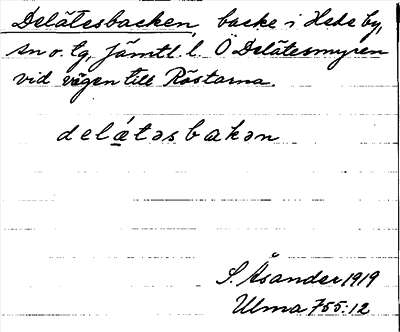 Delätesbacken, backe i Hede by,
sn o. tg, Jämtl. l. Ö Delätesmyren
vid vägen till Röstarna.
delǽtəsbakən
S. Åsander 1919
Ulma 755:12